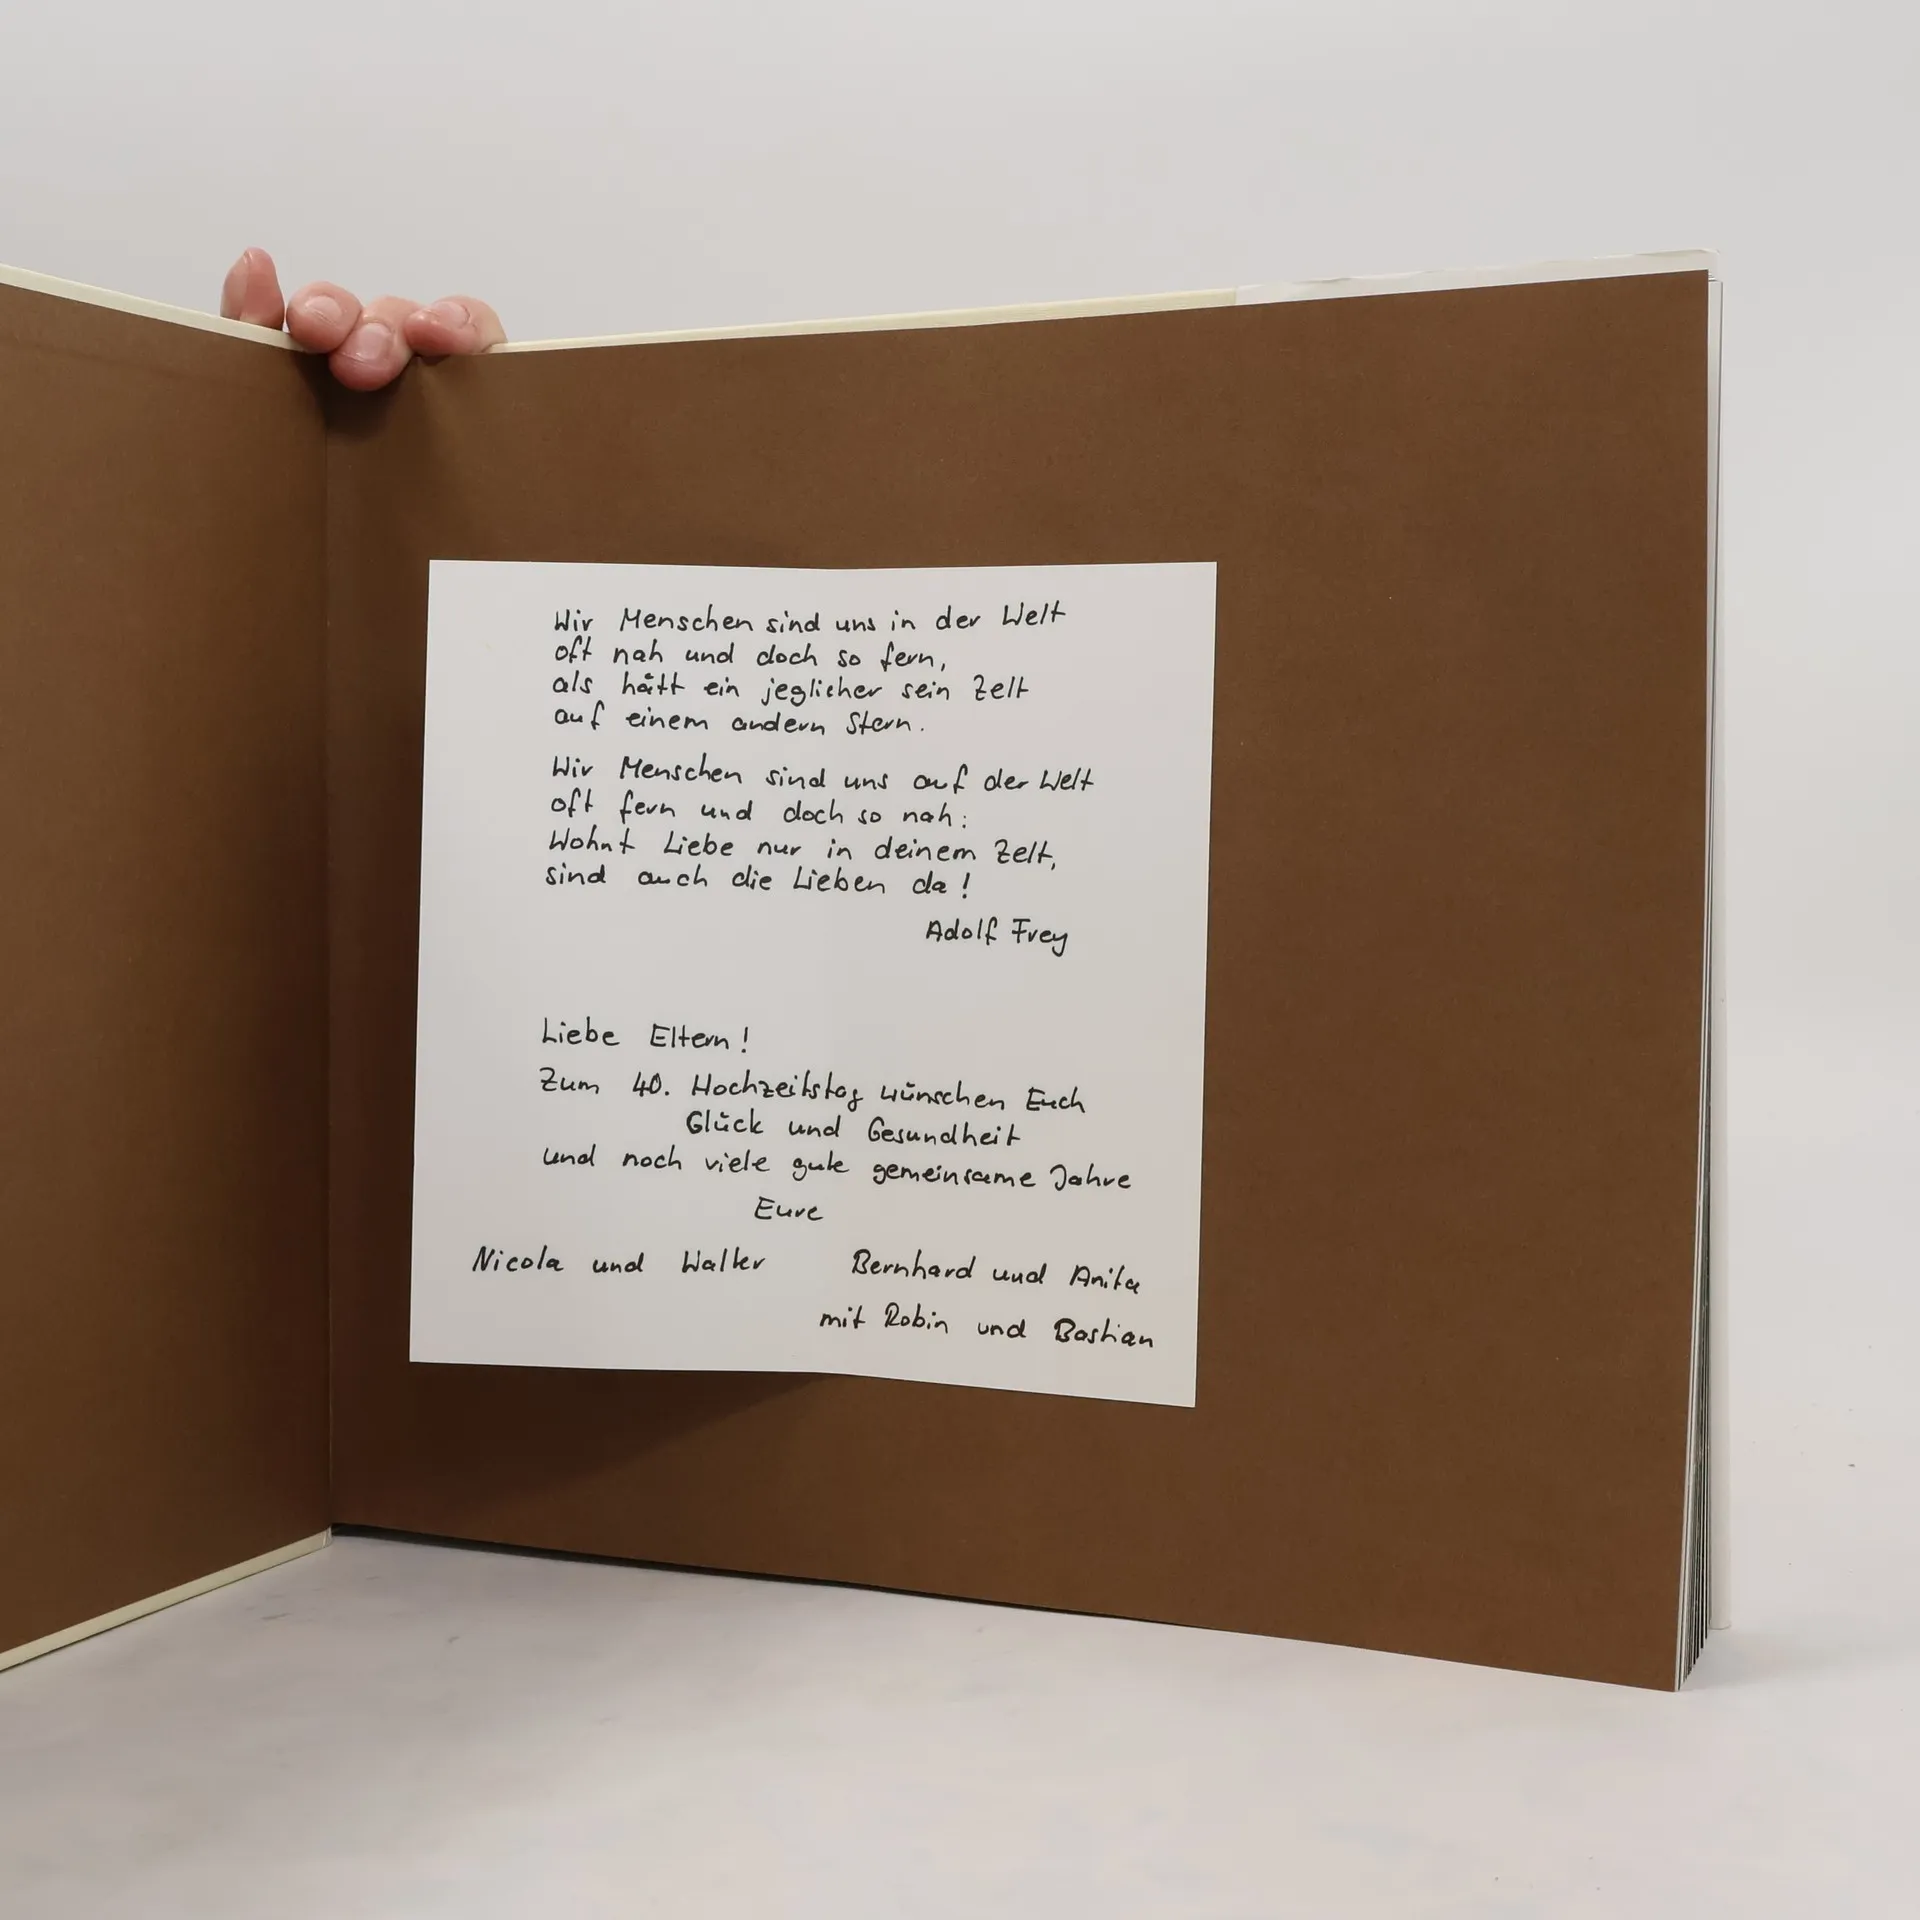 Wir Menschen sind uns in der Welt
oft nah und doch so fern,
als hätt ein jeglicher sein Zelt
auf einem andern Stern.
Wir Menschen sind uns auf der Welt
oft fern und doch so nah:
Wohnt Liebe nur in deinem Zelt,
sind auch die Lieben da!
Adolf Frey
Liebe Eltern!
Zum 40. Hochzeitstag wünschen Euch
Glück und Gesundheit
und noch viele gute gemeinsame Jahre
Eure
Nicola und Walter Bernhard und Anita
mit Robin und Bastian